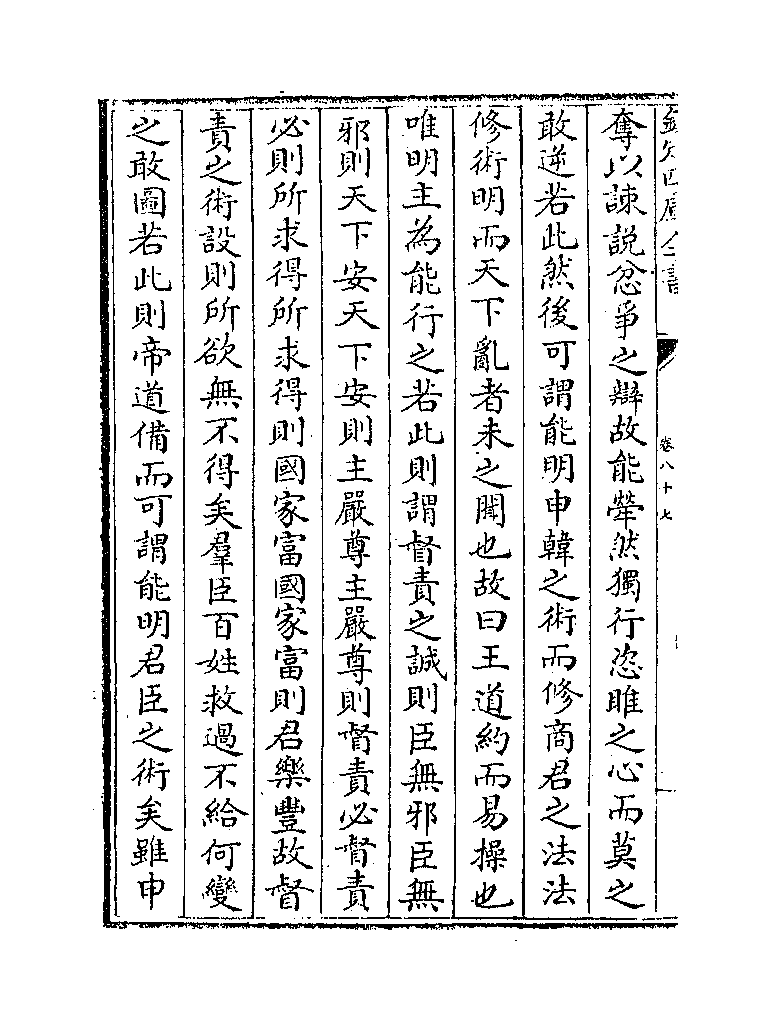 欽定四庫全書
卷八十七
奪以諫說忿爭之辯故能犖然獨行恣睢之心而莫之
敢逆若此然後可謂能明申韓之術而修商君之法法
修術明而天下亂者未之聞也故曰王道約而易操也
唯明主為能行之若此則謂督責之誠則臣無邪臣無
邪則天下安天下安則主嚴尊主嚴尊則督責必督責
必則所求得所求得則國家富國家富則君樂豐故督
責之術設則所欲無不得矣羣臣百姓救過不給何變
之敢圖若此則帝道備而可謂能明君臣之術矣雖申